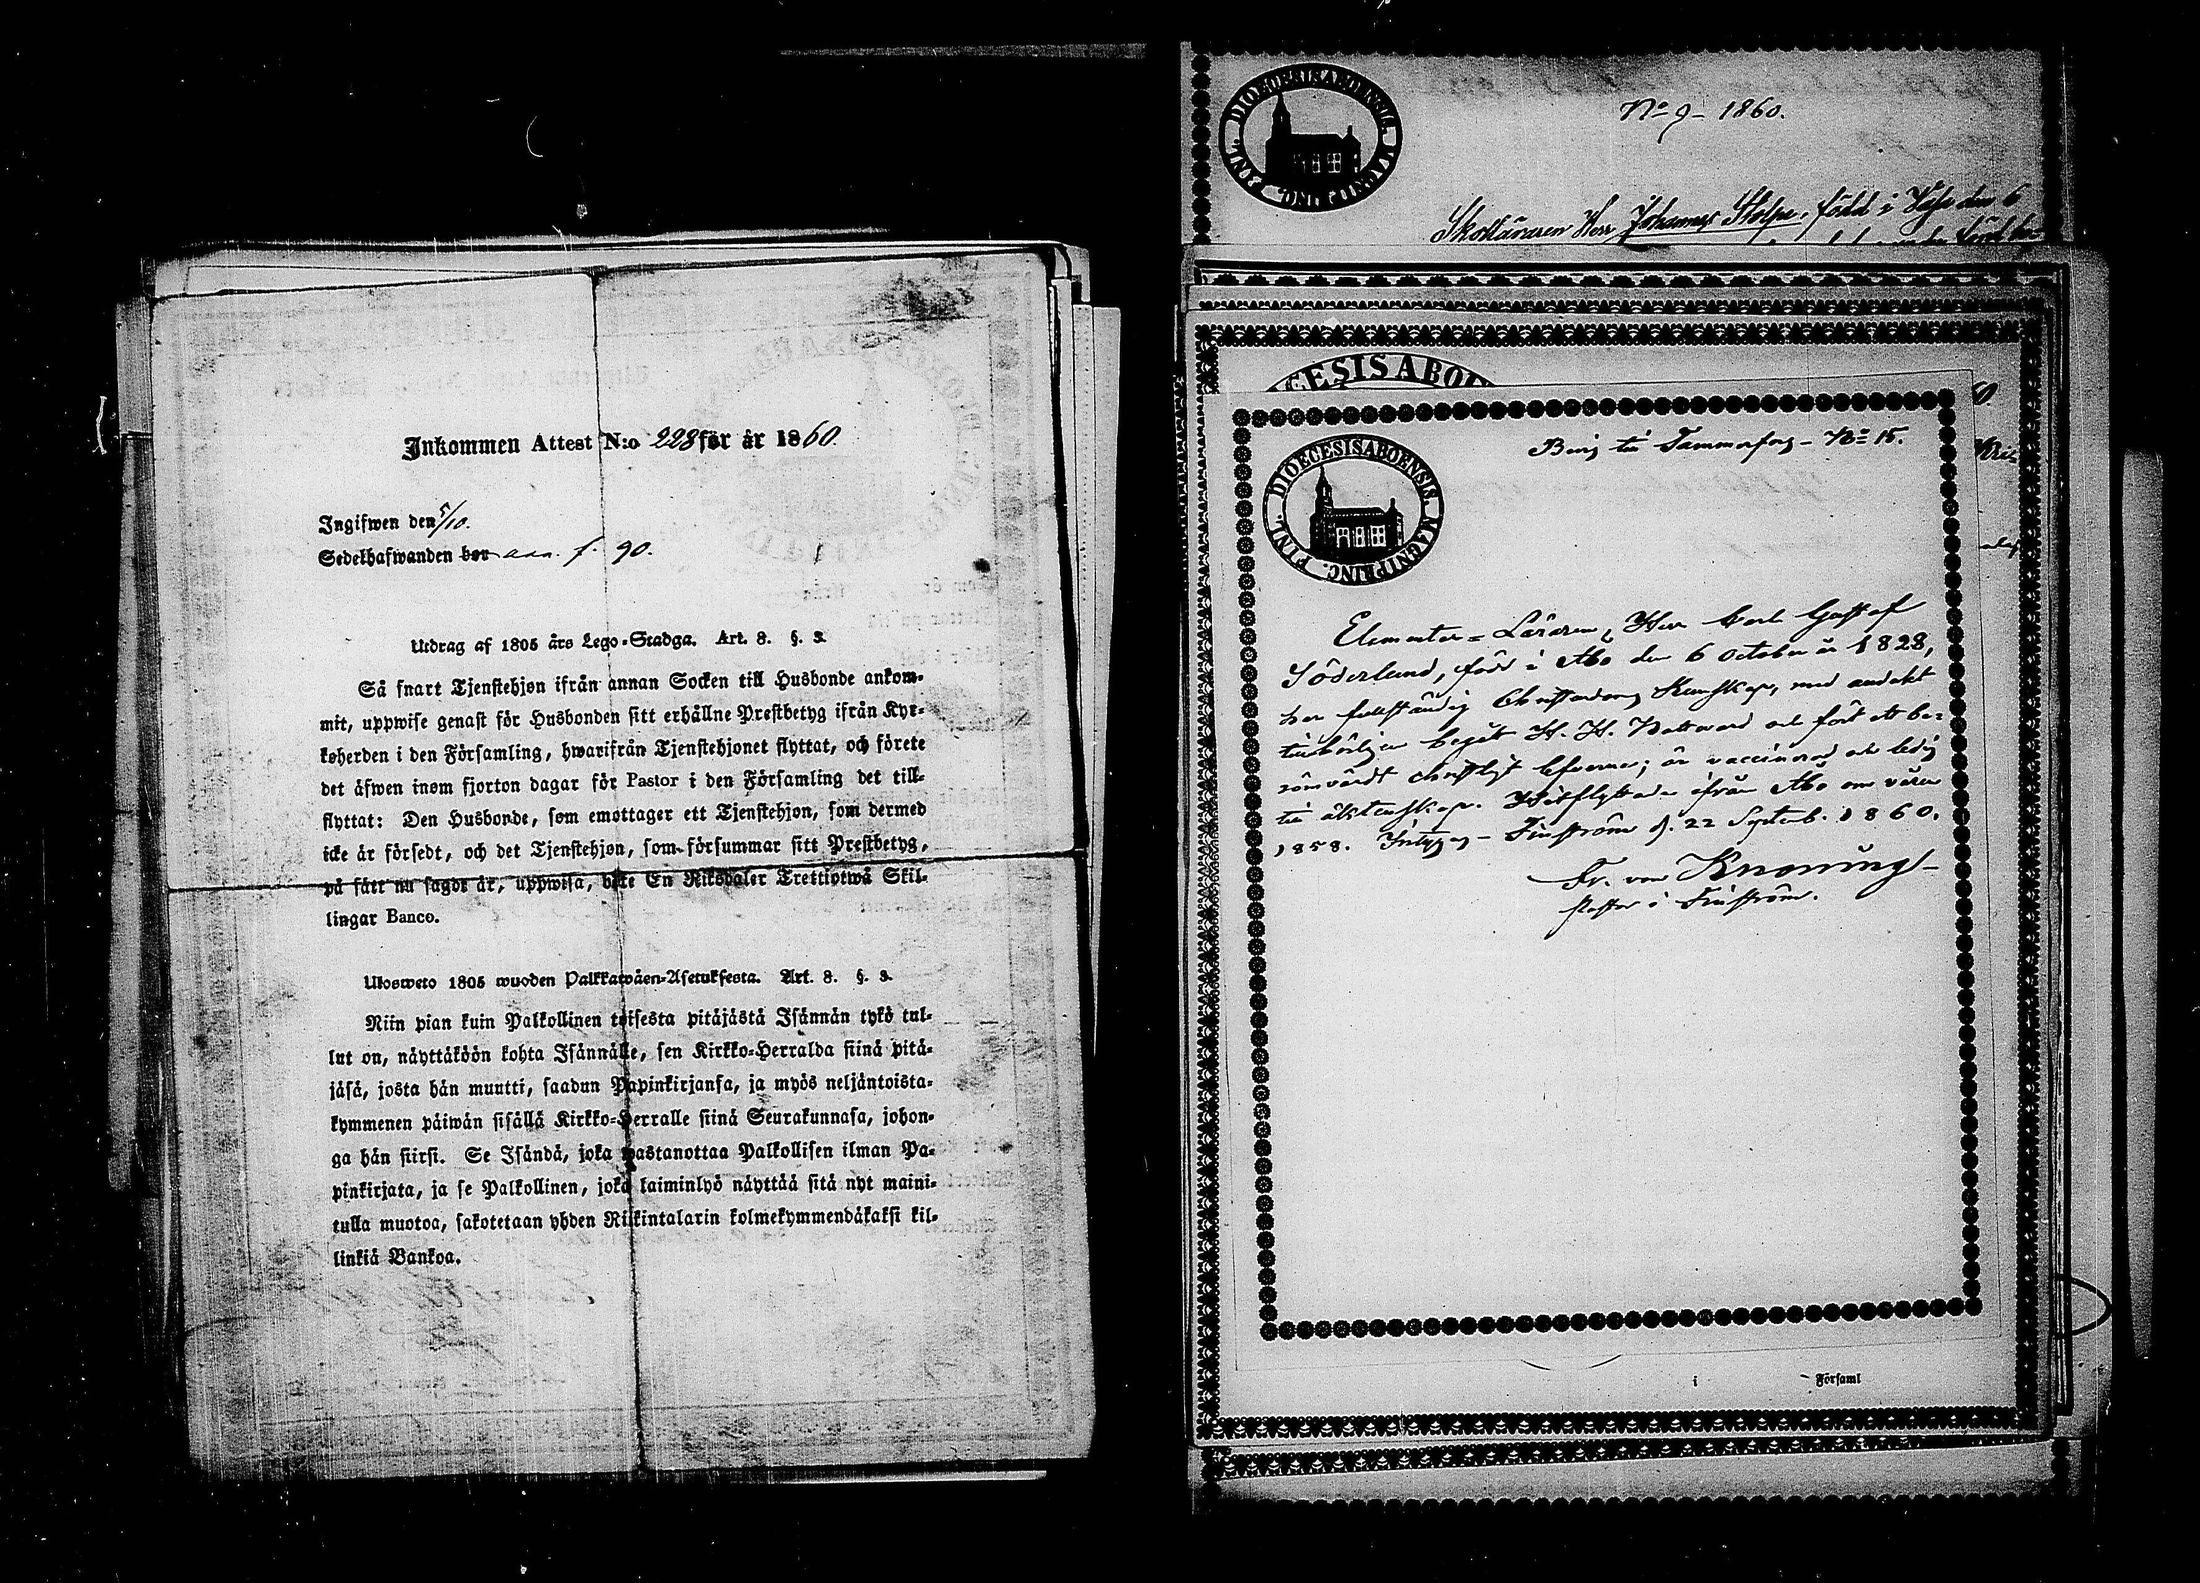 Inkommen Attest N:o 228 för år 1860.
Ingifwen den 5/10.
Sedelhafwanden bor ann. f. 90.
Utdrag af 1805 års Lego-Stadga. Art. 8. §. 3.
Så snart Tjenstehjon ifrån annan Socken till Husbonde ankom-
mit, uppwise genast för Husbonden sitt erhållne Prestbetyg ifrån Kyr-
koherden i den Församling, hwarifrån Tjenstehjonet flyttat, och förete
det äfwen inom fjorton dagar för Pastor i den Församling det till-
flyttat: Den Husbonde, som emottager ett Tjenstehjon, som dermed
icke är försedt, och det Tjenstehjon, som försummar sitt Prestbetyg,
på sätt nu sagdt är, uppwisa, böte En Riksdaler Trettiotwå Skil-
lingar Banco.
Ulosweto 1805 wuoden Palkkawäen-Asetuksesta. Art. 8. §. 3.
Niin pian kuin Palkollinen toisesta pitäjästä Isännän tykö tul-
lut on, näyttäköön kohta Isännälle, sen Kirkko-Herralda siinä pitä-
jäsä, josta hän muutti, saadun Papinkirjansa, ja myös neljäntoista-
kymmenen päiwän sisällä Kirkko-Herralle siinä Seurakunnasa, johon-
ga hän siirsi. Se Isändä, joka wastanottaa Palkollisen ilman Pa-
pinkirjata, ja se Palkollinen, joka laiminlyö näyttää sitä nyt maini-
tulla muotoa, sakotetaan yhden Riikintalarin kolmekymmendäkaksi kil-
linkiä Bankoa.
DIOECESIS ABOENSIS. MAGNI PRINC. FINL.
No 9 - 1860.
Skolläraren Herr Johannes Stolpe, född i Wasa den 6
CESIS ABO
DIOECESIS ABOENSIS. MAGNI PRINC. FINL.
Betyg till Tammerfors - No 15.
Elementar-Läraren, Herr Carl Gustaf
Söderlund, född i Åbo den 6 October år 1828,
har fullständig Christendoms Kunskap, med andakt
tillbörligen begått H. H. Nattvard och fört ett be-
römvärdt christligt lefverne; är vaccinerad och ledig
till äktenskap. Hitflyttade ifrån Åbo om våren
1858. Intygas - Finström d. 22 Septemb. 1860.
Fr. von Knorring
Pastor i Finström.
i Församl